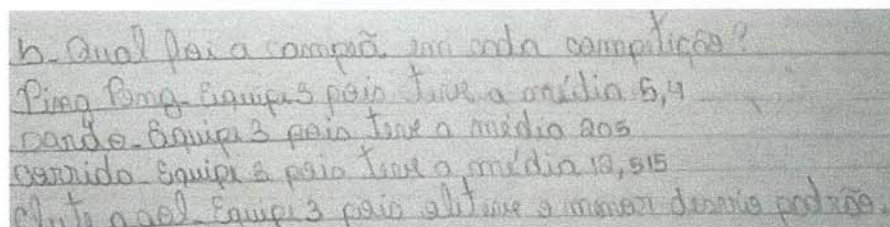 b- Qual foi a campeã em cada competição?
Ping Pong - Equipe 3 pois teve a média 5,4
dardo - Equipe 3 pois teve a média 205
corrida - Equipe 3 pois teve a média 12,515
chute a gol - Equipe 3 pois obteve o menor desvio padrão.